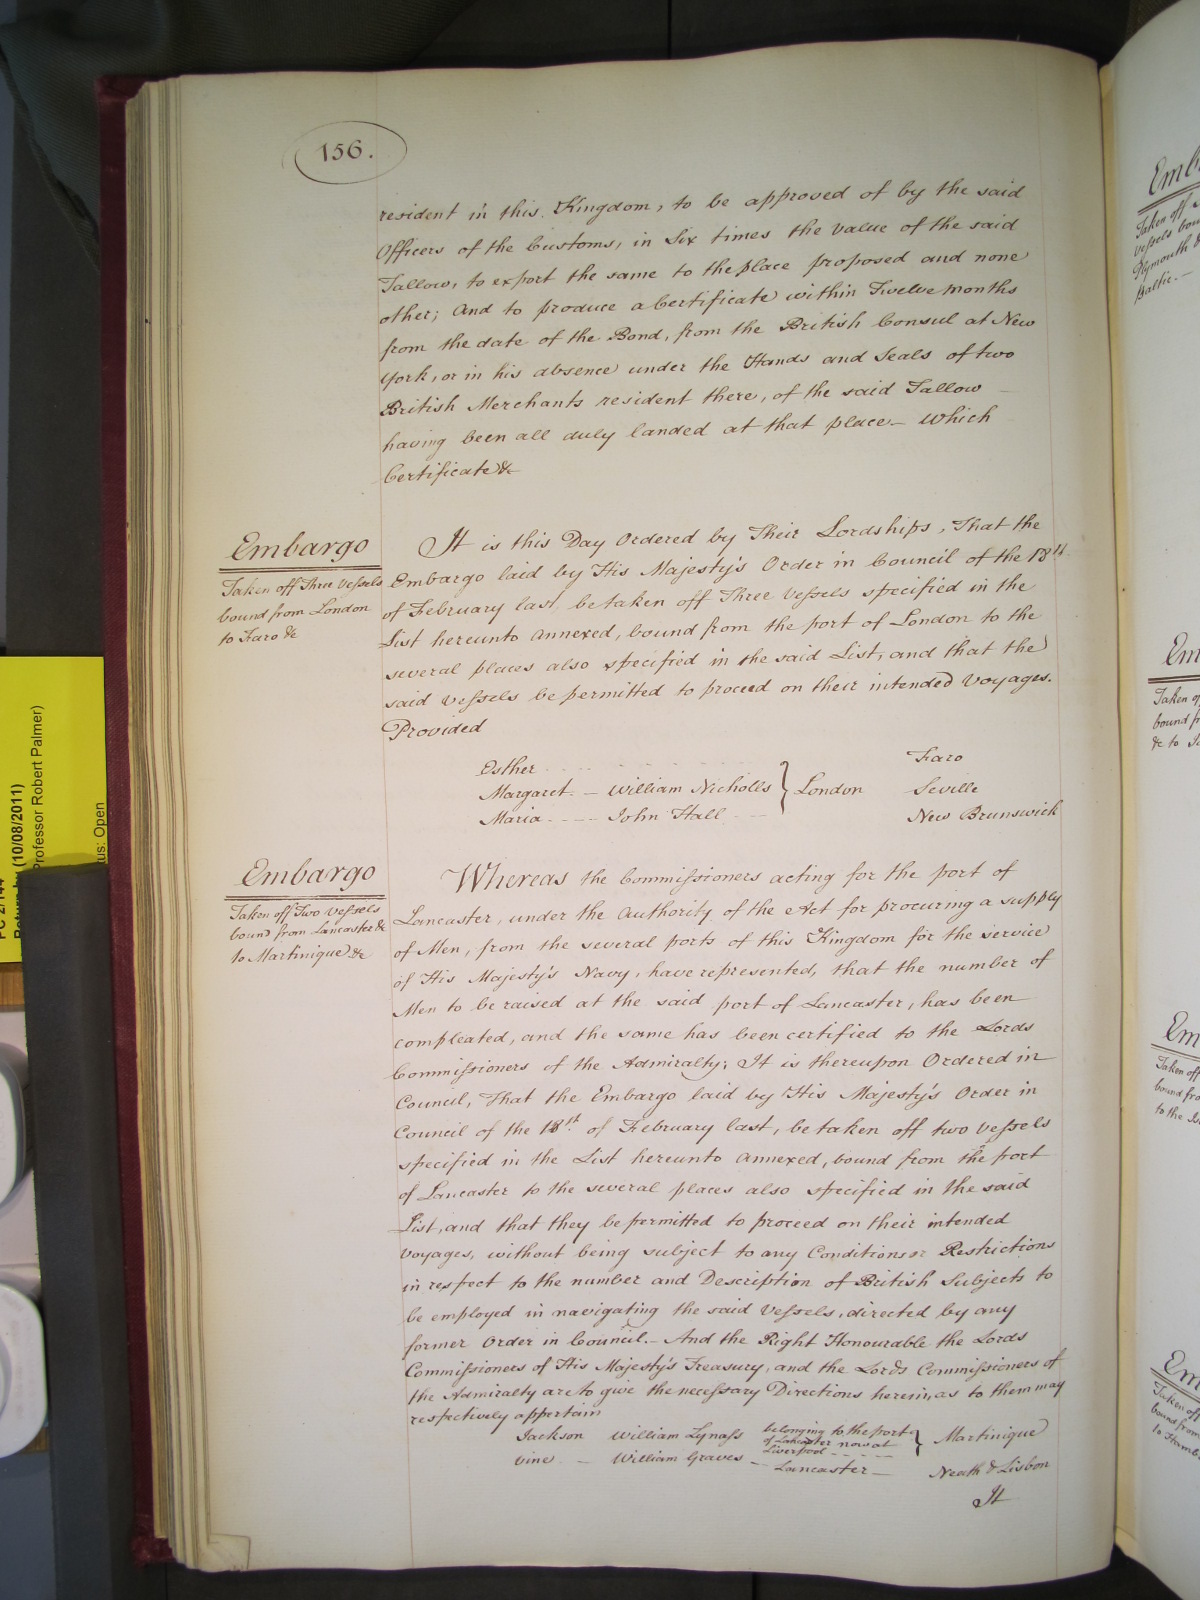 156.
resident in this Kingdom, to be approved of by the said
Officers of the Customs, in Six times the value of the said
Tallow, to export the same to the place proposed and none
other; And to produce a Certificate within Twelve months
from the date of the Bond, from the British Consul at New
York, or in his absence under the Hands and Seals of two
British Merchants resident there, of the said Tallow
having been all duly landed at that place – Which
Certificate &c
Embargo
Taken off Three Vessels
bound from London
to Faro &c
It is this Day Ordered by Their Lordships, That the
Embargo laid by His Majesty's Order in Council of the 18th
of February last, be taken off Three Vessels specified in the
List hereunto annexed, bound from the port of London to the
several places also specified in the said List, and that the
said Vessels be permitted to proceed on their intended Voyages.
Provided
Esther - - - - Faro
Margaret - William Nicholls } London Seville
Maria - - - - John Hall - - New Brunswick
Embargo
Taken off Two Vessels
bound from Lancaster &c
to Martinique &c
Whereas the Commissioners acting for the port of
Lancaster, under the Authority of the Act for procuring a supply
of Men, from the several ports of this Kingdom for the service
of His Majesty's Navy, have represented, that the number of
Men to be raised at the said port of Lancaster, has been
compleated, and the same has been certified to the Lords
Commissioners of the Admiralty; It is thereupon Ordered in
Council, That the Embargo laid by His Majesty's Order in
Council of the 18th of February last, be taken off two vessels
specified in the List hereunto annexed, bound from the port
of Lancaster to the several places also specified in the said
List, and that they be permitted to proceed on their intended
Voyages, without being subject to any Conditions or Restrictions
in respect to the number and Description of British Subjects to
be employed in navigating the said Vessels, directed by any
former Order in Council. – And the Right Honourable the Lords
Commissioners of His Majesty's Treasury, and the Lords Commissioners of
the Admiralty are to give the necessary Directions herein, as to them may
respectively appertain
Jackson William Lynass belonging to the port
of Lancaster now at
Liverpool - - - } Martinique
Vine - - William Graves - Lancaster - Neath & Lisbon
It
Return by (10/08/2011)
Professor Robert Palmer)
tus: Open
Taken off
vessels bou
Plymouth &
Baltic. –
Em
Taken of
bound f
Em
Taken off
bound fro
to the
Em
Taken off
bound from